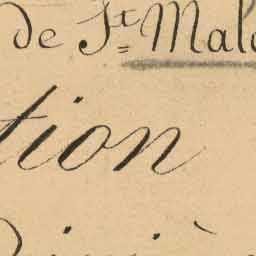 de St Malo
tion